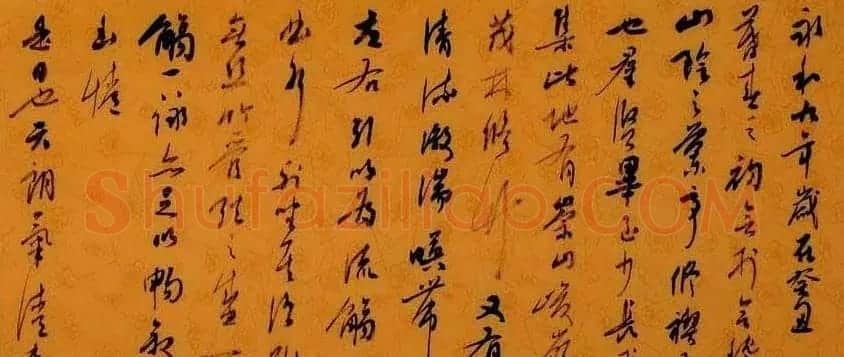 永和九年歲在癸丑
暮春之初會於會稽
山陰之蘭亭脩禊
也羣賢畢至少長
集此地有崇山峻嶺
茂林脩竹又有
清流激湍暎帶
左右引以為流觴
曲水列坐其次雖
無絲竹管弦之盛一
觴一詠亦足以暢敘
幽情
是日也天朗氣清
Shufaziliao.COM